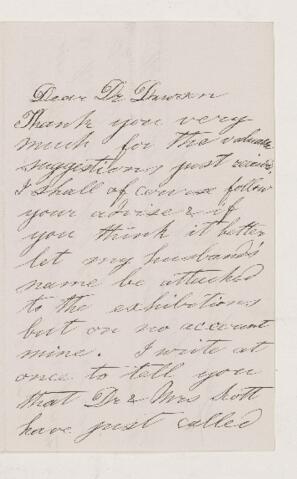 Dear Dr Dawson
Thank you very
much for the valuable
suggestions just receiv'd,
I shall of course follow
your advise & if
you think it better
let my husband's
name be attached
to the exhibitions
but on no account
mine. I write at
once to tell you
that Dr & Mrs Scott
have just called